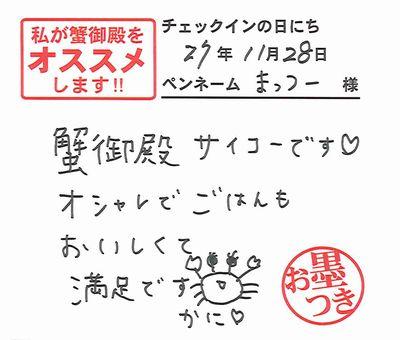 私が蟹御殿を
オススメ
します!!
チェックインの日にち
27年 11月28日
ペンネーム まっつー 様
蟹御殿 サイコーです♡
オシャレで ごはんも
おいしくて
満足です
かに♡
お墨つき